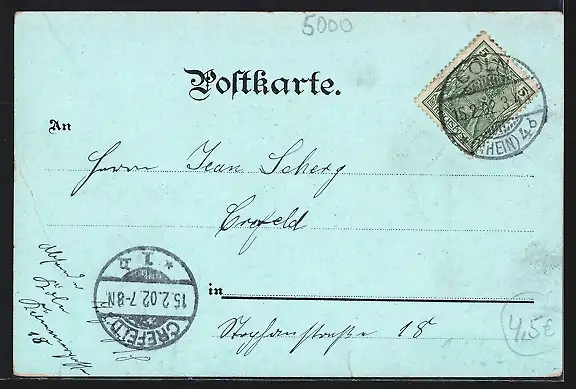 5000
Postkarte.
CÖLN
15.2.02. 3
(RHEIN) 4b
An
Herrn Jean Scherg
Crefeld
in
Stephanstraße 18
CREFELD
15.2.02.7-8N
* 1 b
Köln
18
4,5€